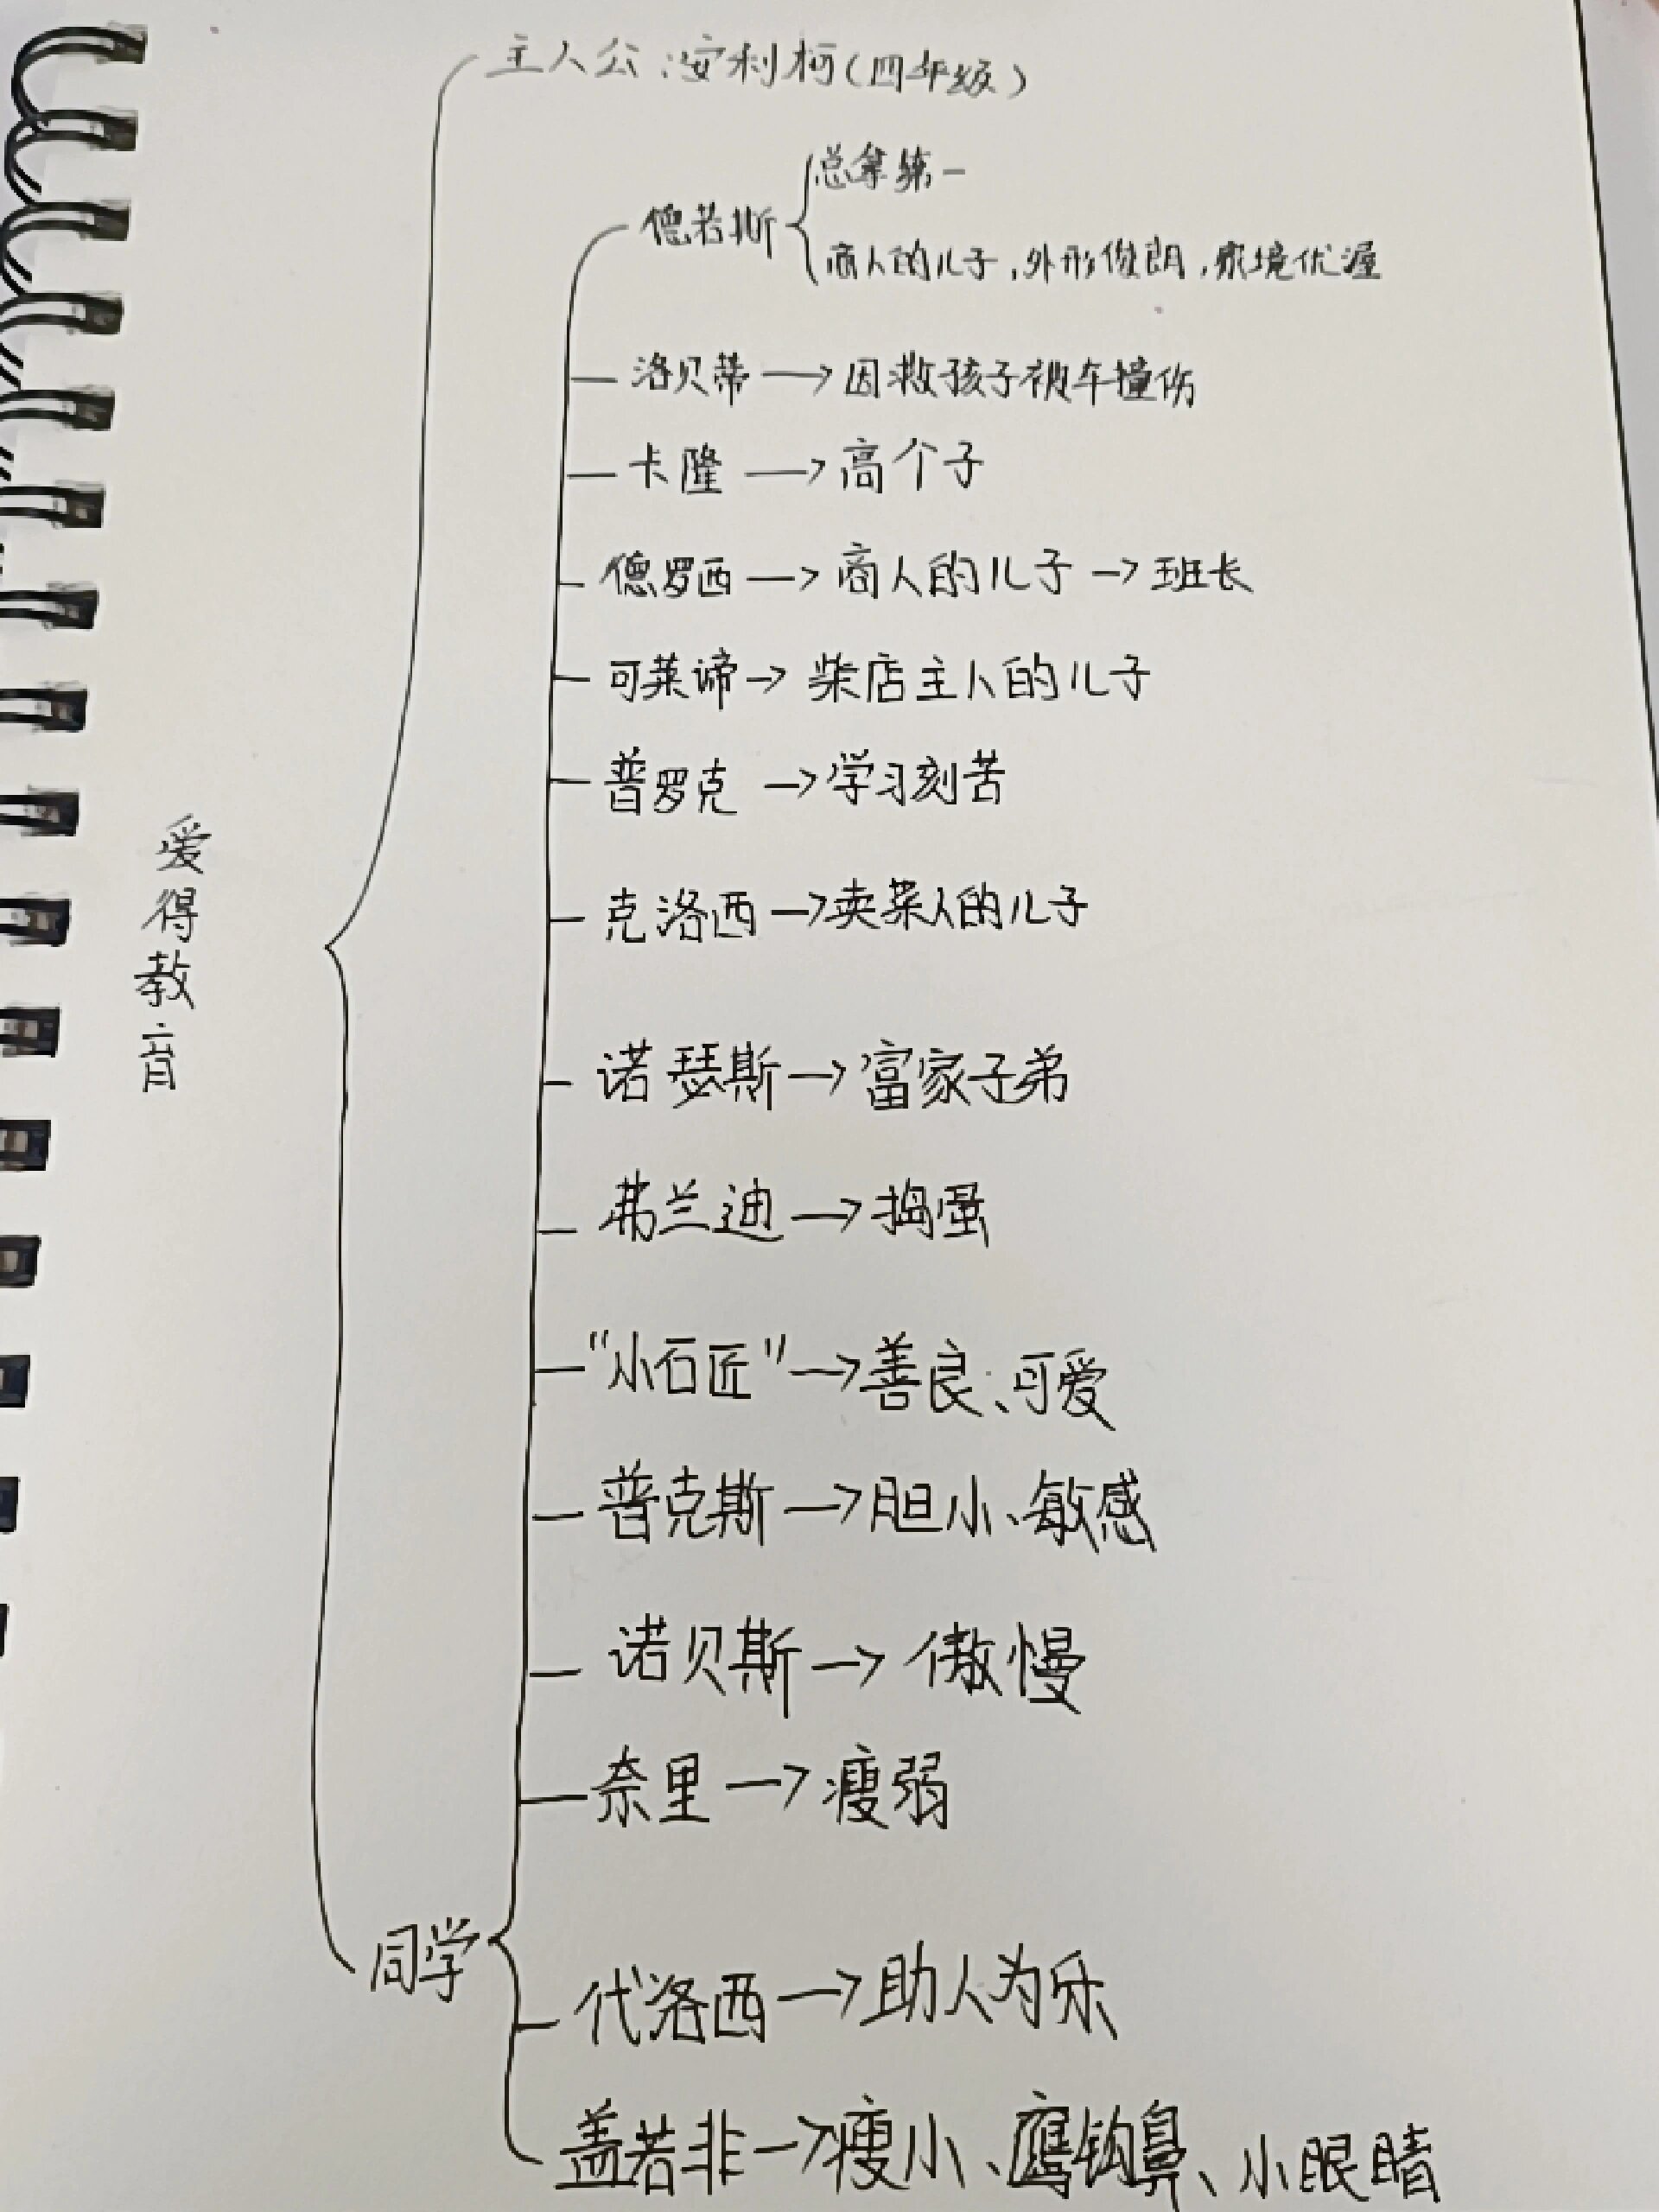 主人公:安利柯(四年级)
德若斯
总拿第一
商人的儿子,外形俊朗,家境优渥
洛贝蒂→因救孩子被车撞伤
卡隆→高个子
德罗西→商人的儿子→班长
可莱谛→柴店主人的儿子
普罗克→学习刻苦
克洛西→卖菜人的儿子
诺瑟斯→富家子弟
弗兰迪→捣蛋
"小石匠"→善良、可爱
普克斯→胆小、敏感
诺贝斯→傲慢
奈里→瘦弱
同学
代洛西→助人为乐
盖若非→瘦小、鹰钩鼻、小眼睛
爱得教育